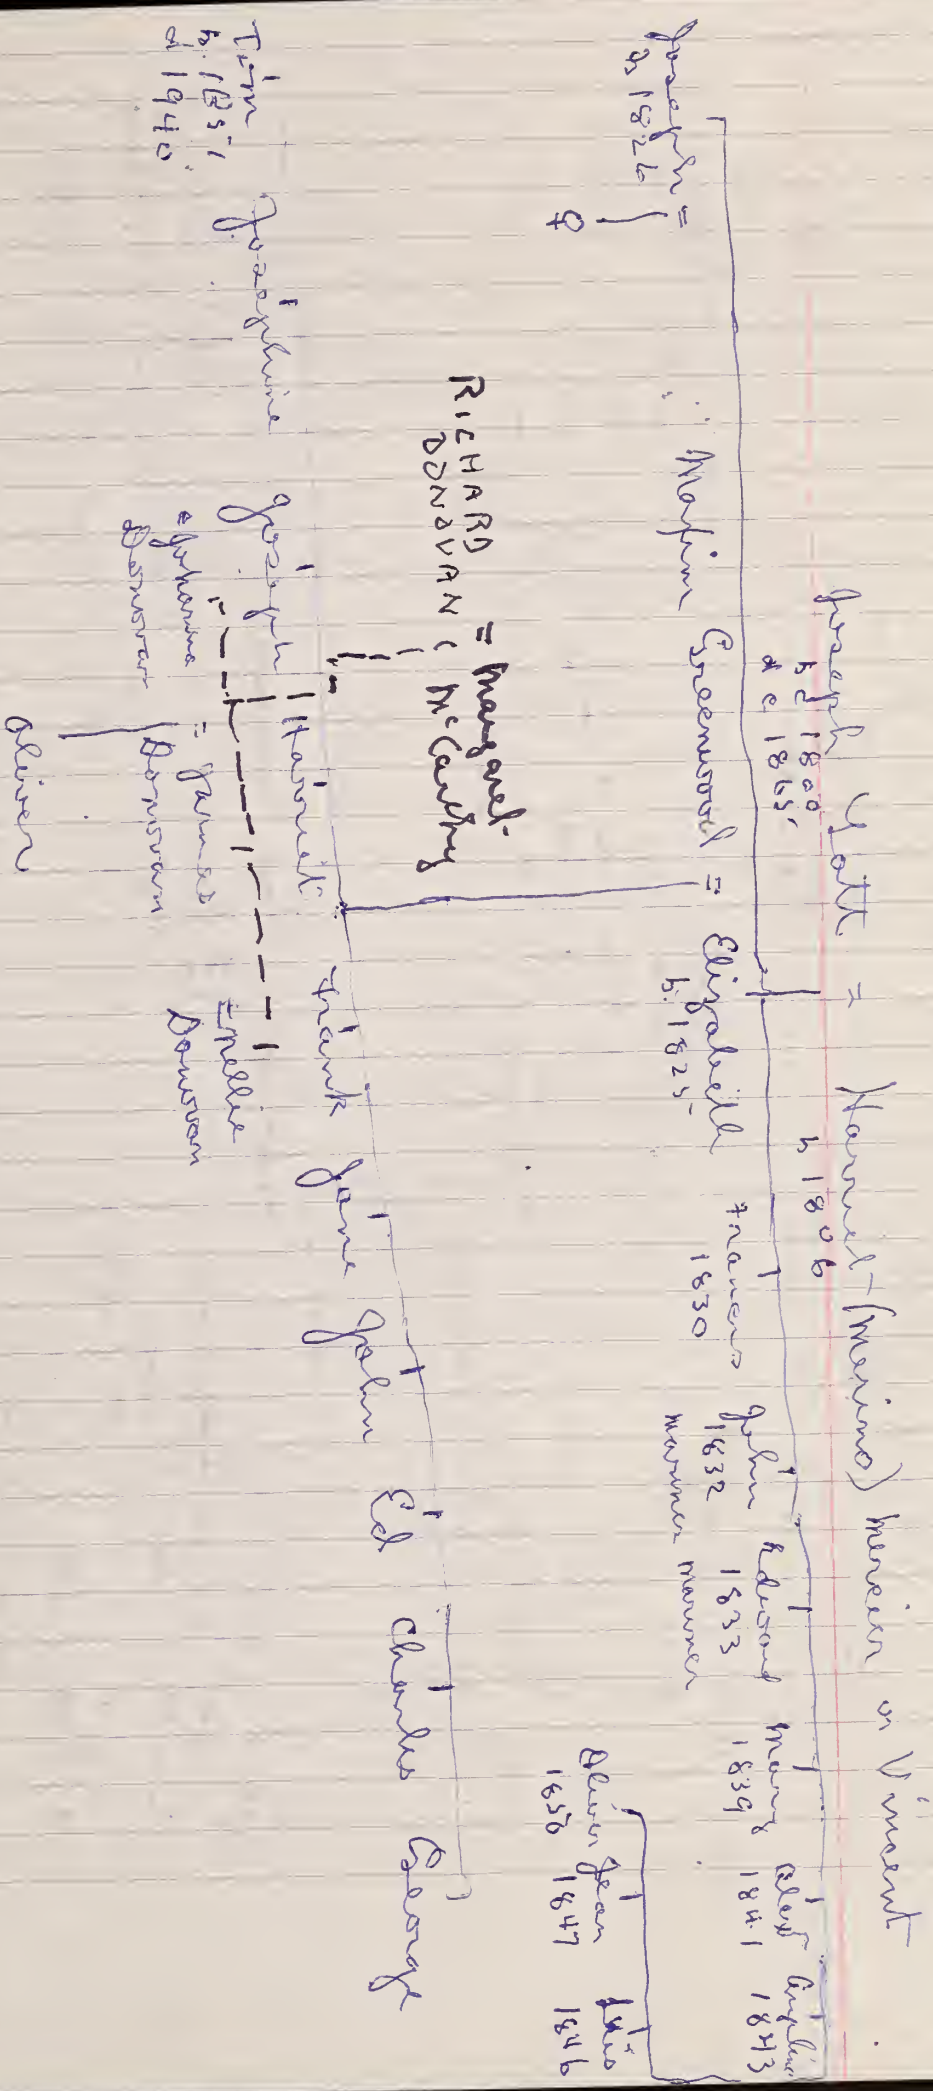 Joseph Yott = Harriet (Merino) Mercier or Vincent
b c 1800
d c 1865
b 1806
Joseph =
b 1826
♀
Maxim Greenwood = Elizabeth
b. 1825
Francis
1830
John
1832
mariner
Edward
1833
mariner
Mary
1839
Alex
1841
1843
Oliver
1850
Jean
1847
1846
RICHARD = Margaret
DONOVAN McCarthy
Tim
b. 1851
d 1940
Josephine
Joseph
= Johanna
Donovan
Harriet
= James
Donovan
Oliver
Frank
= Nellie
Donovan
Jane
John
Ed
Charles
George